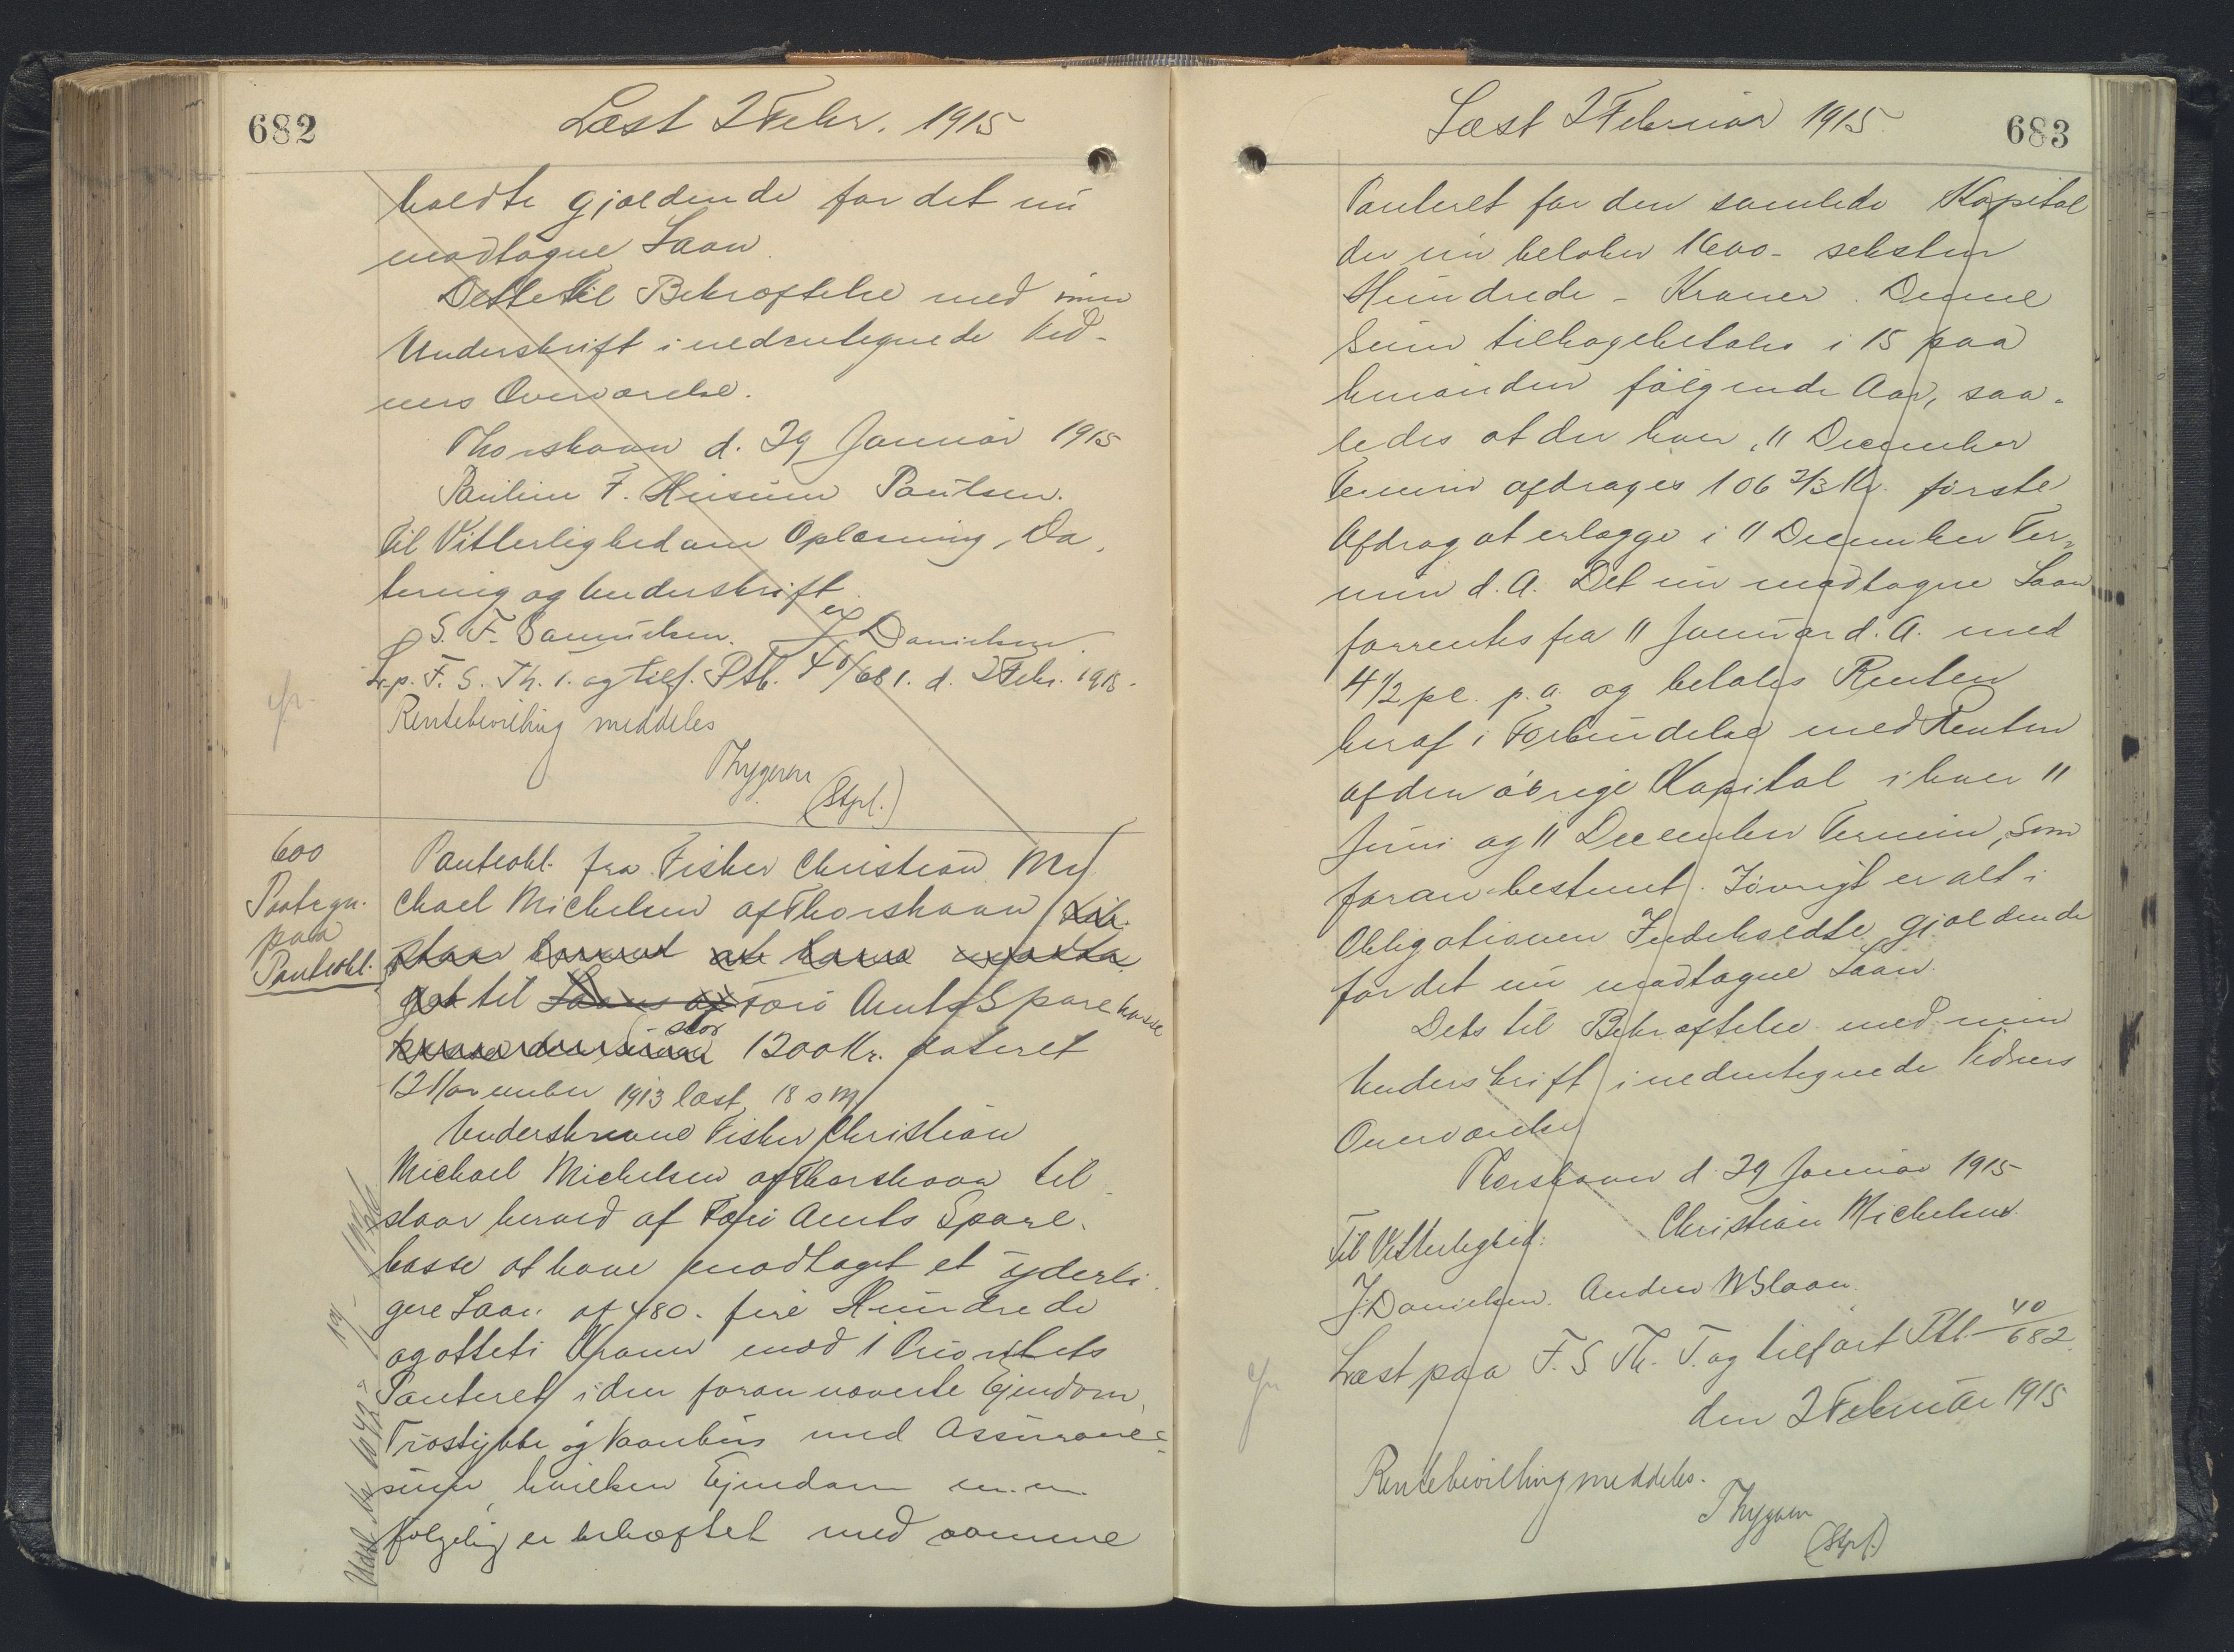 682
Læst 2 Febr. 1915
holdte gjældende for det nu
modtagne Laan.
Dette til Bekræftelse med min
Underskrift i nedentegnede Vid-
ners Overværelse.
Thorshavn d. 29 Januar 1915
Pauline F. Husum Paulsen.
Til Vitterlighed om Oplæsning, Da-
tering og Underskrift
S. F. Samuelsen. J Danielsen.
L. p. F. S. Th. 1. og tilf. Ptb. 40/681. d. 2 Febr. 1915.
Rentebevilling meddeles
Thygesen
(Stpl.)
600
Paategn.
paa
Panteobl.
Panteobl. fra Fisker Christian Mi
chael Michelsen af Thorshavn til-
staar herved at have modta
get til Laans af Færø Amts Sparekasse
stor 1200 Kr. dateret
12 November 1913 læst 18 s M
Underskrevne Fisker Christian
Michael Michelsen af Thorshavn til-
staar herved af Færø Amts Spare-
kasse at have modtaget et yderli-
gere Laan af 480 - fire Hundrede
og otteti Kroner mod 1 Prioritets
Panteret i den foran nævnte Ejendom,
Trøstykke og Vaanhus med Assurance-
sum, hvilken Ejendom m. m.
følgelig er behæftet med samme
683
Læst 2 Februar 1915
Panteret for den samlede Kapital
der nu beløber 1600 - seksten
Hundrede - Kroner. Denne
Sum tilbagebetales i 15 paa
hinanden følgende Aar, saa-
ledes at der hver 11 December
Termin afdrages 106 2/3 Kr. første
Afdrag at erlægge i 11 December Ter-
min d. A. Det nu modtagne Laan
forrentes fra 11 Januar d. A. med
4 1/2 pc. p. a. og betales Renten
heraf i Forbindelse med Renten
af den øvrige Kapital i hver 11
Juni og 11 December Termin, som
foran bestemt. Iøvrigt er alt i
Obligationen Indeholdte gjældende
for det nu modtagne Laan.
Dets til Bekræftelse med min
Underskrift i nedentegnede Vidners
Overværelse
Thorshavn d. 29 Januar 1915
Christian Michelsen.
Til Vitterlighed:
J. Danielsen. Andrea
Læst paa F. S. Th. T. og tilført Ptb. 40/682.
den 2 Februar 1915
Rentebevilling meddeles.
Thygesen
(Stpl.)